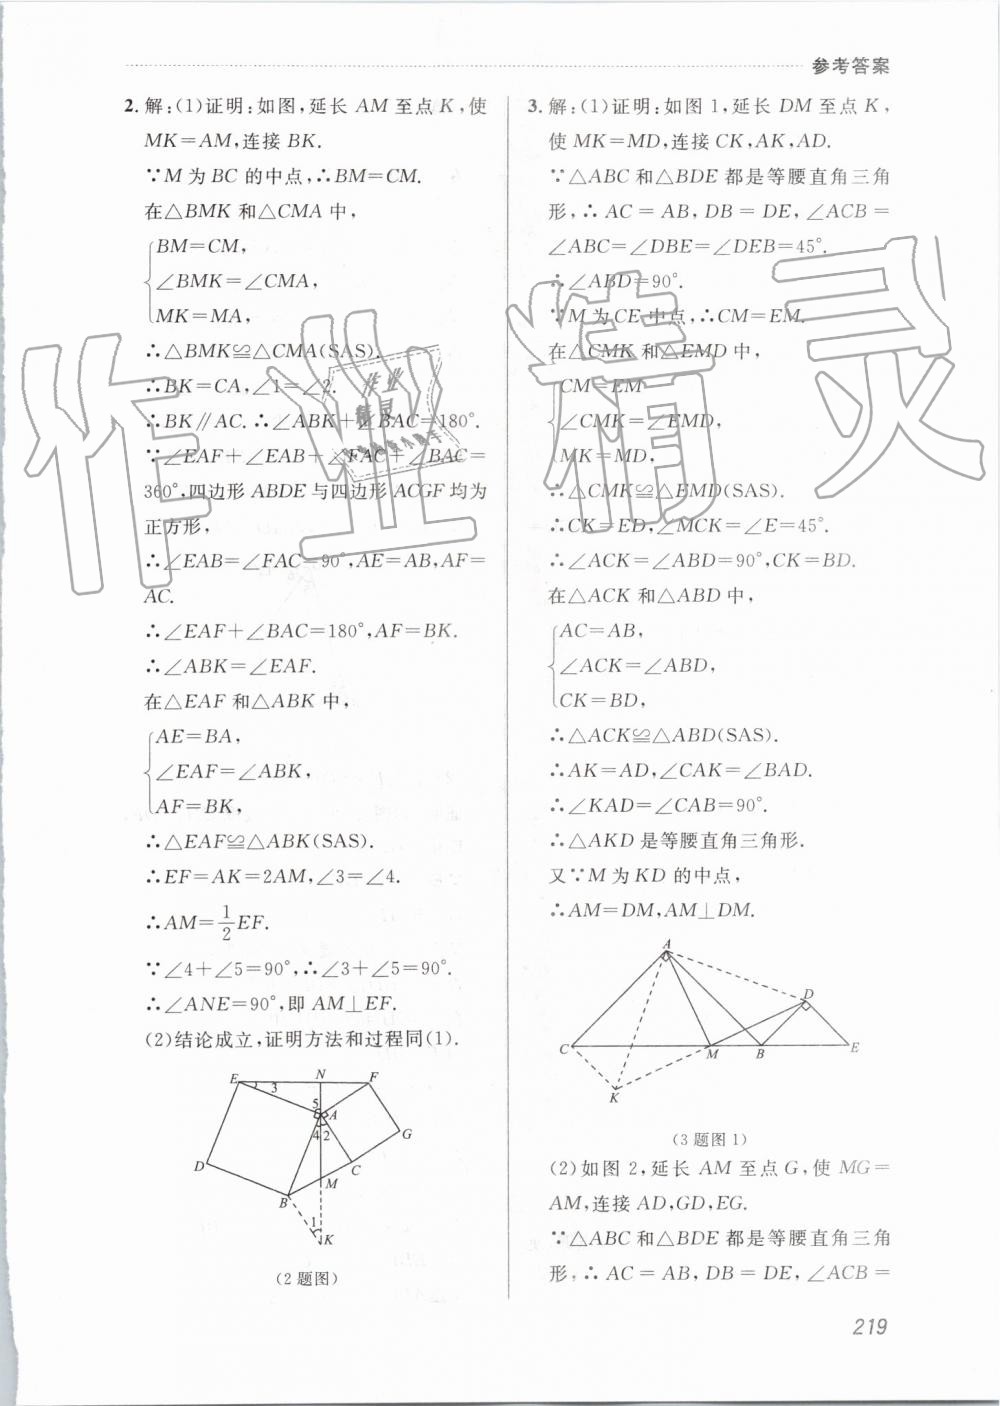 参考答案
2. 解:(1)证明:如图,延长 AM 至点 K,使
MK=AM,连接 BK.
∵M 为 BC 的中点,∴BM=CM.
在△BMK 和△CMA 中,
BM=CM,
∠BMK=∠CMA,
MK=MA,
∴△BMK≌△CMA(SAS).
∴BK=CA,∠1=∠2.
∴BK∥AC.∴∠ABK+∠BAC=180°.
∵∠EAF+∠EAB+∠FAC+∠BAC=
360°,四边形 ABDE 与四边形 ACGF 均为
正方形,
∴∠EAB=∠FAC=90°,AE=AB,AF=
AC.
∴∠EAF+∠BAC=180°,AF=BK.
∴∠ABK=∠EAF.
在△EAF 和△ABK 中,
AE=BA,
∠EAF=∠ABK,
AF=BK,
∴△EAF≌△ABK(SAS).
∴EF=AK=2AM,∠3=∠4.
∴AM=1/2EF.
∵∠4+∠5=90°,∴∠3+∠5=90°.
∴∠ANE=90°,即 AM⊥EF.
(2)结论成立,证明方法和过程同(1).
E 3 N F
5 A
4 2 G
D C
M
B
1 K
(2题图)
3. 解:(1)证明:如图 1,延长 DM 至点 K,
使 MK=MD,连接 CK,AK,AD.
∵△ABC 和△BDE 都是等腰直角三角
形,∴ AC = AB, DB = DE, ∠ACB =
∠ABC=∠DBE=∠DEB=45°.
∴∠ABD=90°.
∵M 为 CE 中点,∴CM=EM.
在△CMK 和△EMD 中,
CM=EM
∠CMK=∠EMD,
MK=MD,
∴△CMK≌△EMD(SAS).
∴CK=ED,∠MCK=∠E=45°.
∴∠ACK=∠ABD=90°,CK=BD.
在△ACK 和△ABD 中,
AC=AB,
∠ACK=∠ABD,
CK=BD,
∴△ACK≌△ABD(SAS).
∴AK=AD,∠CAK=∠BAD.
∴∠KAD=∠CAB=90°.
∴△AKD 是等腰直角三角形.
又∵M 为 KD 的中点,
∴AM=DM,AM⊥DM.
A
D
C M B E
K
(3题图1)
(2)如图 2,延长 AM 至点 G,使 MG=
AM,连接 AD,GD,EG.
∵△ABC 和△BDE 都是等腰直角三角
形,∴ AC = AB, DB = DE, ∠ACB =
219
作业精灵
作业
精灵